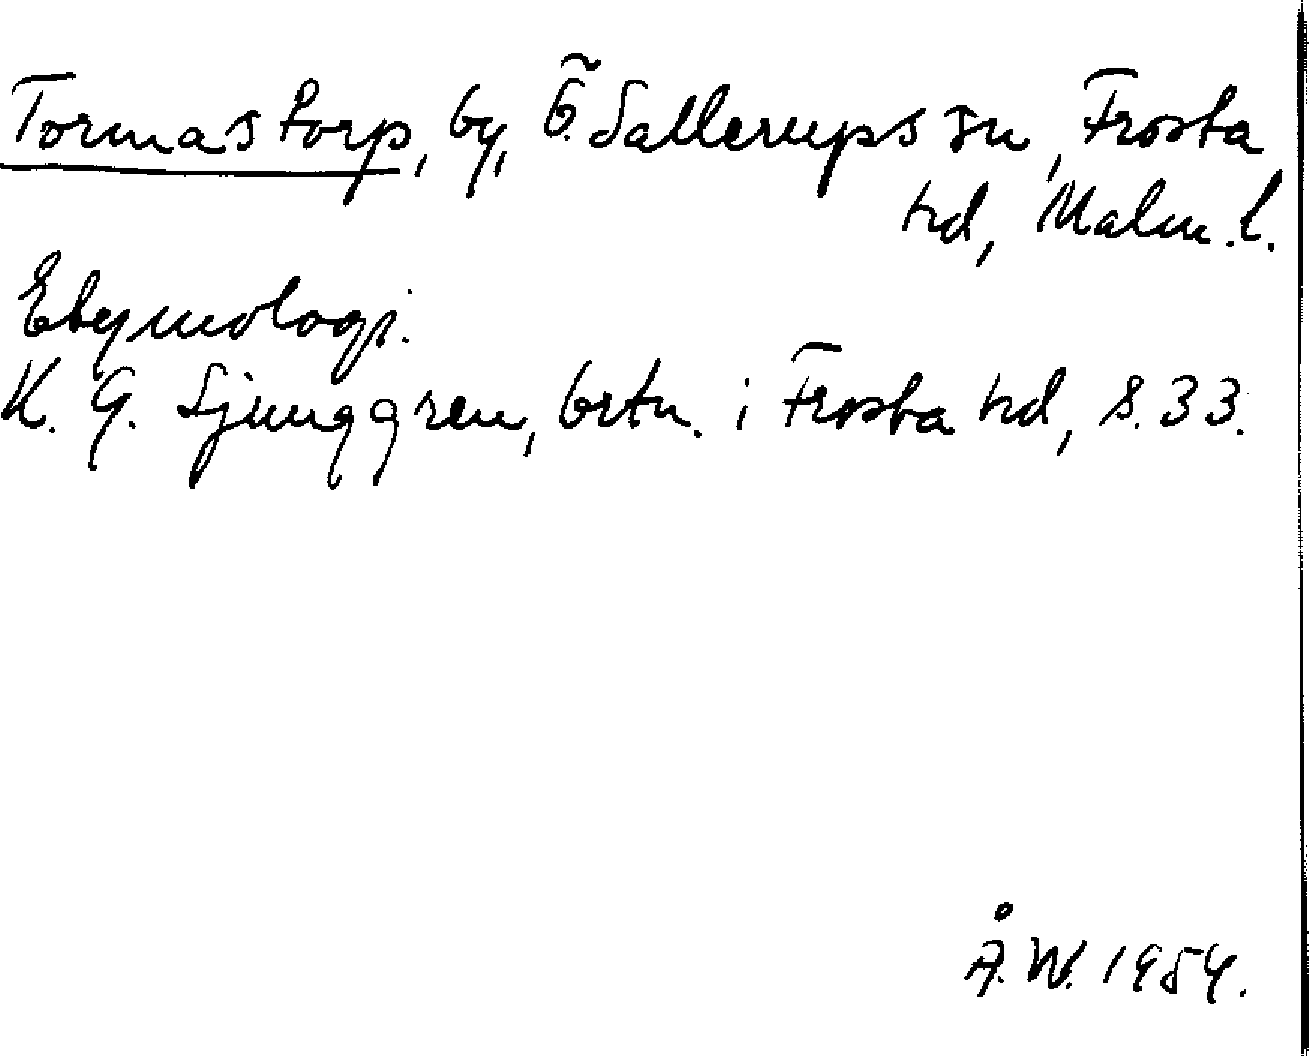 Tormastorp, by, Ö. Sallerups sn, Frosta
hd, Malm. l.
Etymologi.
K. G. Ljunggren, brtn. i Frosta hd, s. 33.
Å. W. 1954.